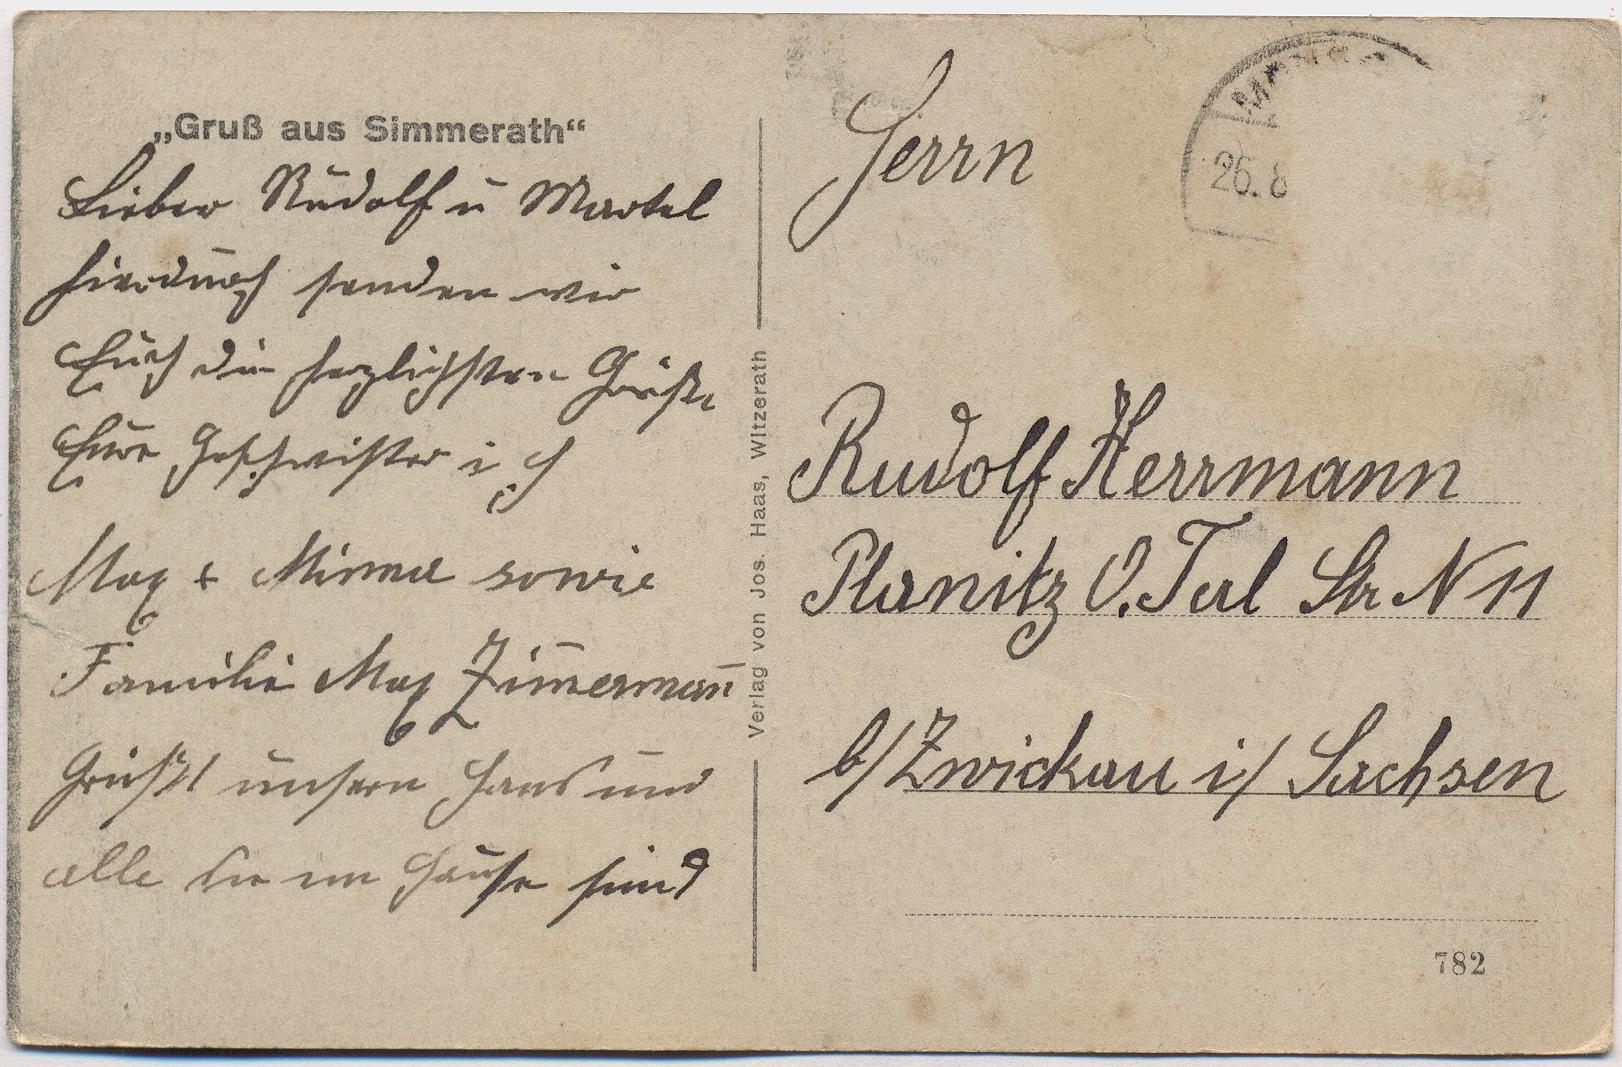 „Gruß aus Simmerath“
Lieber Rudolf u Martel
hierdurch senden wir
Euch die herzlichsten Grüße
Eure Geschwister
Max + Minna sowie
Familie Max Zim̅erman̅
Grüßt unsern Hans und
alle die im Hause sind
Verlag von Jos. Haas, Witzerath
Herrn
26.8
Rudolf Herrmann
Planitz O. Tal Str N 11
b/Zwickau i/ Sachsen
782